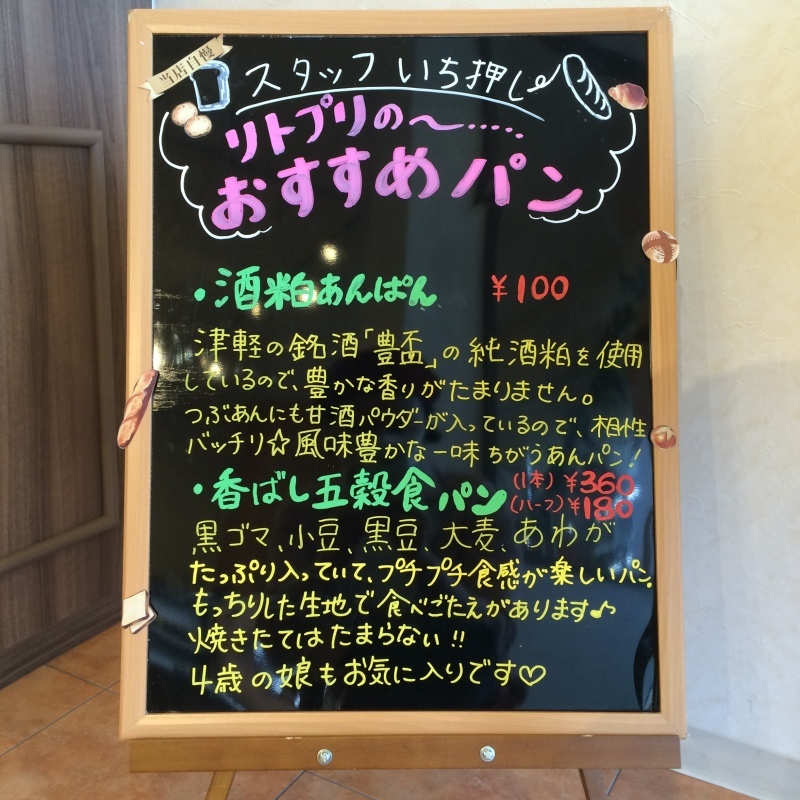 当店自慢
スタッフ いち押し
リトプリの〜‥‥‥
おすすめパン
・酒粕あんぱん ¥100
津軽の銘酒「豊盃」の純酒粕を使用
しているので、豊かな香りがたまりません。
つぶあんにも甘酒パウダーが入っているので、相性
バッチリ☆風味豊かな一味ちがうあんパン!
・香ばし五穀食パン (1本) ¥360
(ハーフ) ¥180
黒ゴマ、小豆、黒豆、大麦、あわが
たっぷり入っていて、プチプチ食感が楽しいパン。
もっちりした生地で食べごたえがあります♪
焼きたてはたまらない!!
4歳の娘もお気に入りです♡